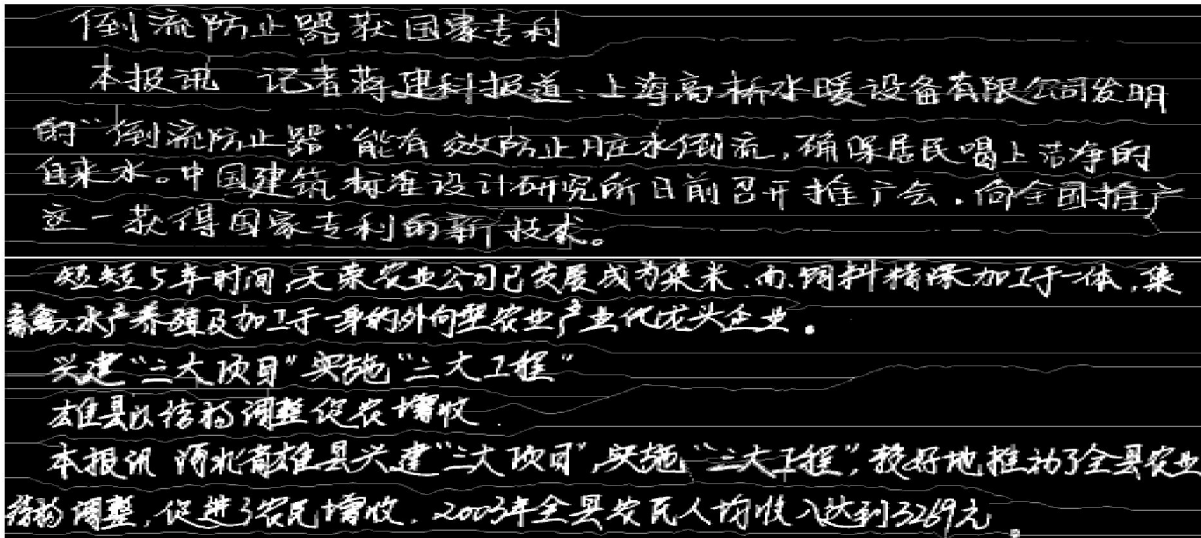 倒流防止器获国家专利
本报讯 记者蒋建科报道:上海高桥水暖设备有限公司发明
的"倒流防止器"能有效防止脏水倒流,确保居民喝上洁净的
自来水。中国建筑标准设计研究所日前召开推广会,向全国推广
这一获得国家专利的新技术。
短短5年时间,天荣农业公司已发展成为集米、面、饲料精深加工于一体,集
畜禽、水产养殖及加工于一身的外向型农业产业化龙头企业。
兴建"三大项目"实施"三大工程"
雄县以结构调整促农增收
本报讯 河北省雄县兴建"三大项目",实施"三大工程",较好地推动了全县农业
结构调整,促进了农民增收,2003年全县农民人均收入达到3269元。